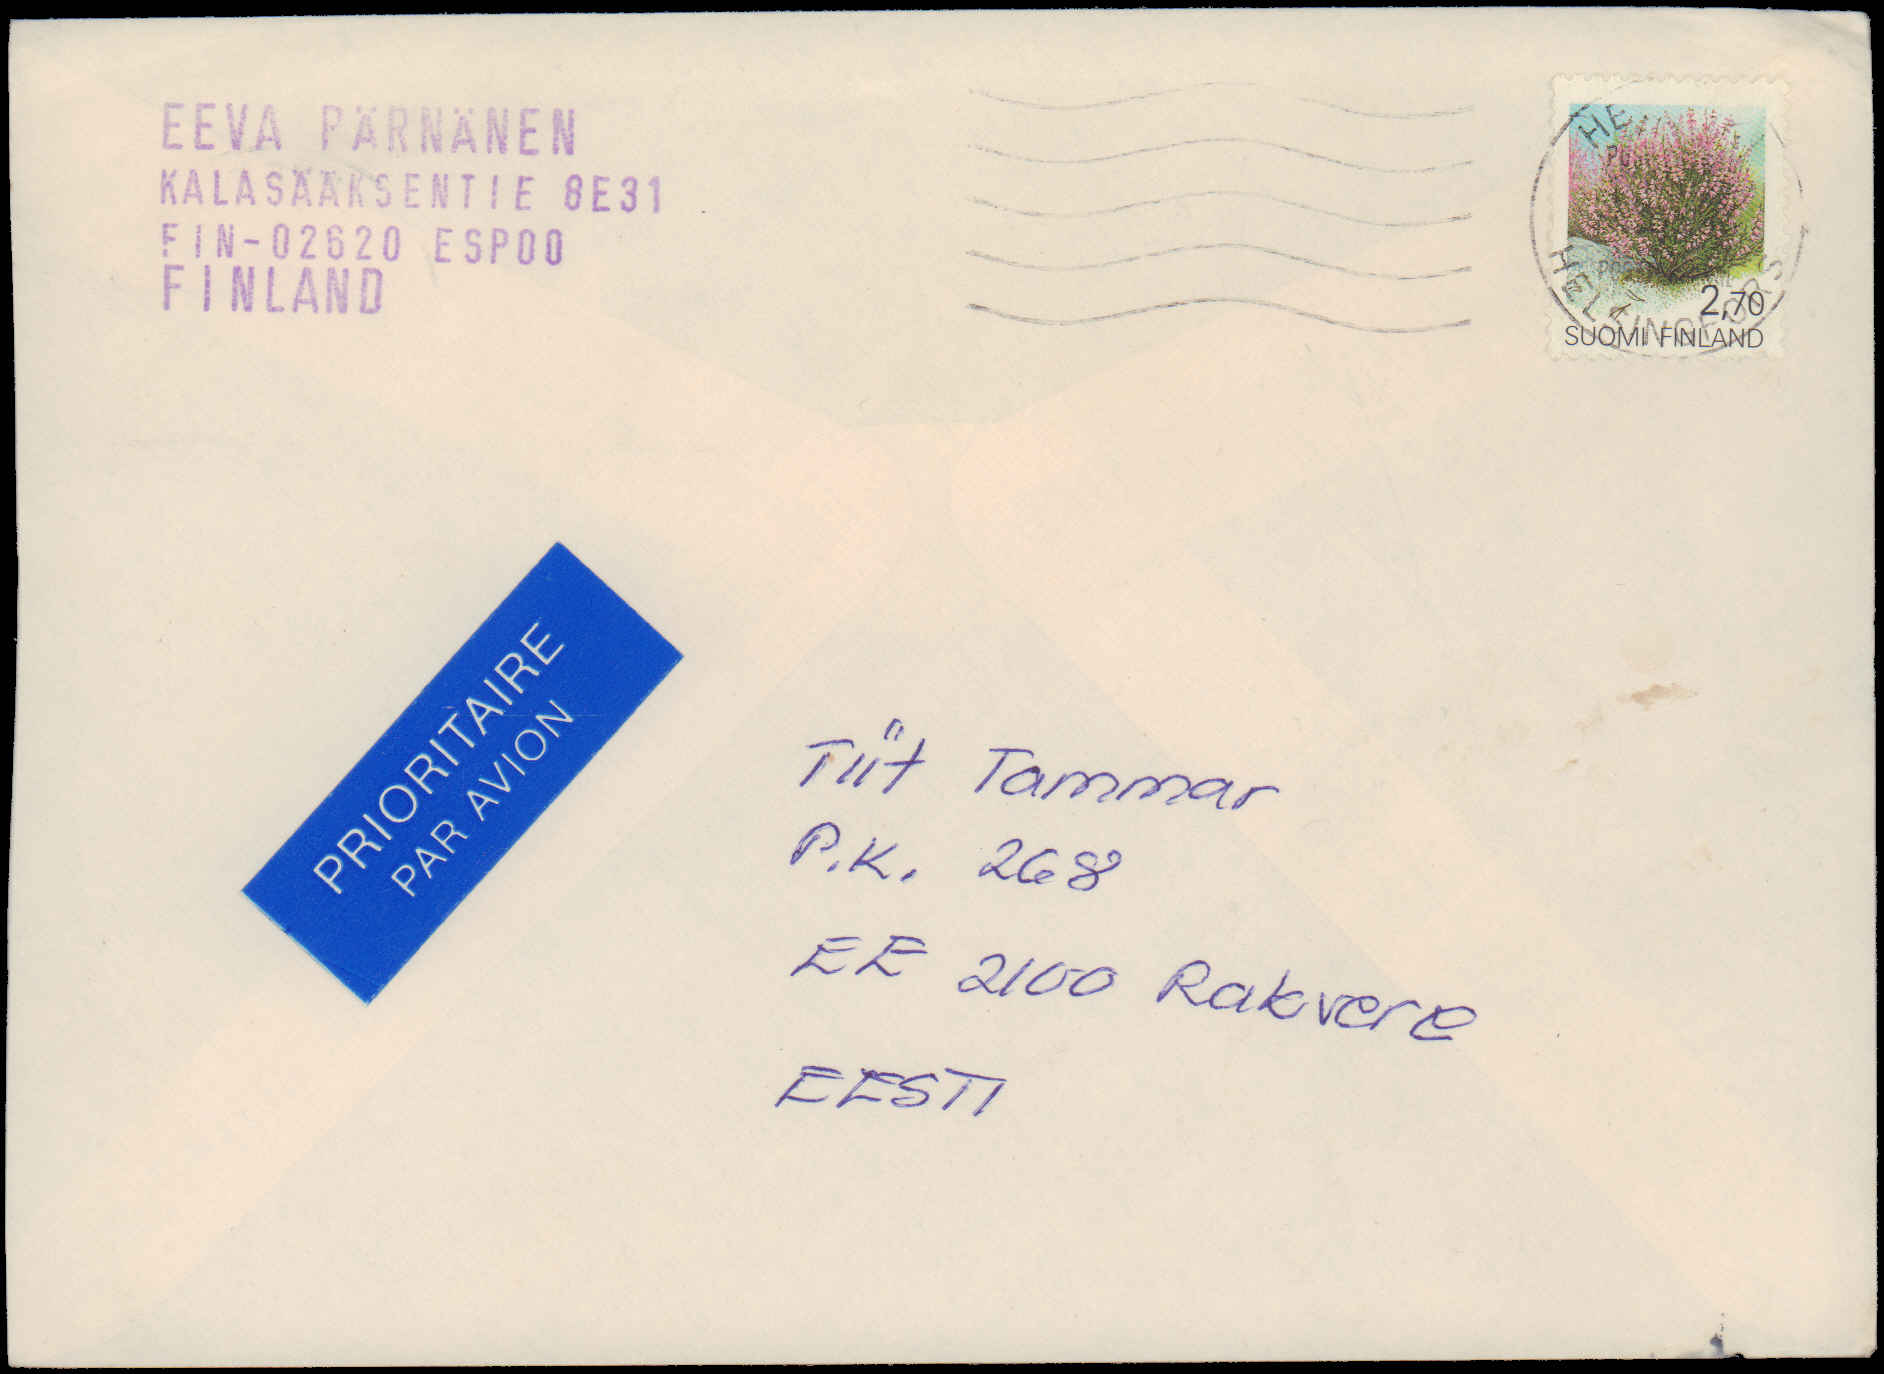 EEVA PÄRNÄNEN
KALASÄÄKSENTIE 8E31
FIN-02620 ESPOO
FINLAND
HELSINGFORS
2,70
SUOMI FINLAND
PRIORITAIRE
PAR AVION
Tiit Tammar
P.K. 268
EE 2100 Rakvere
EESTI